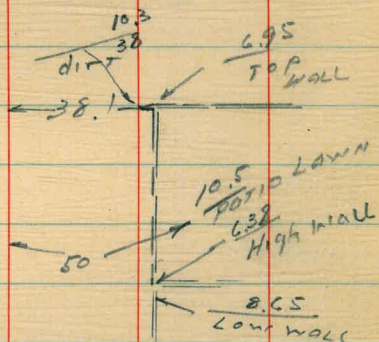 10.3
38
dirt
6.95
TOP
WALL
38.1
10.5
PATIO LAWN
6.38
High Wall
50
8.65
LOW WALL